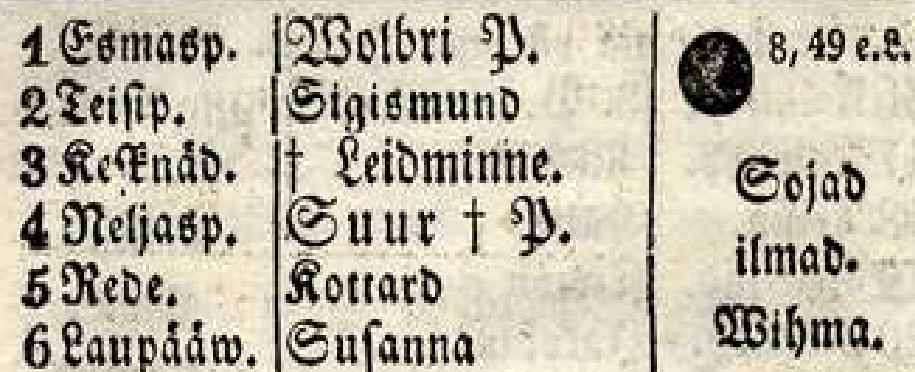 1 Esmasp. Wolbri P. 8, 49 e.L.
2 Teisip. Sigismund
3 Keſknäd. † Leidminne. Sojad
4 Neljasp. Suur † P. ilmad.
5 Rede. Kottard
6 Laupääw. Suſanna Wihma.